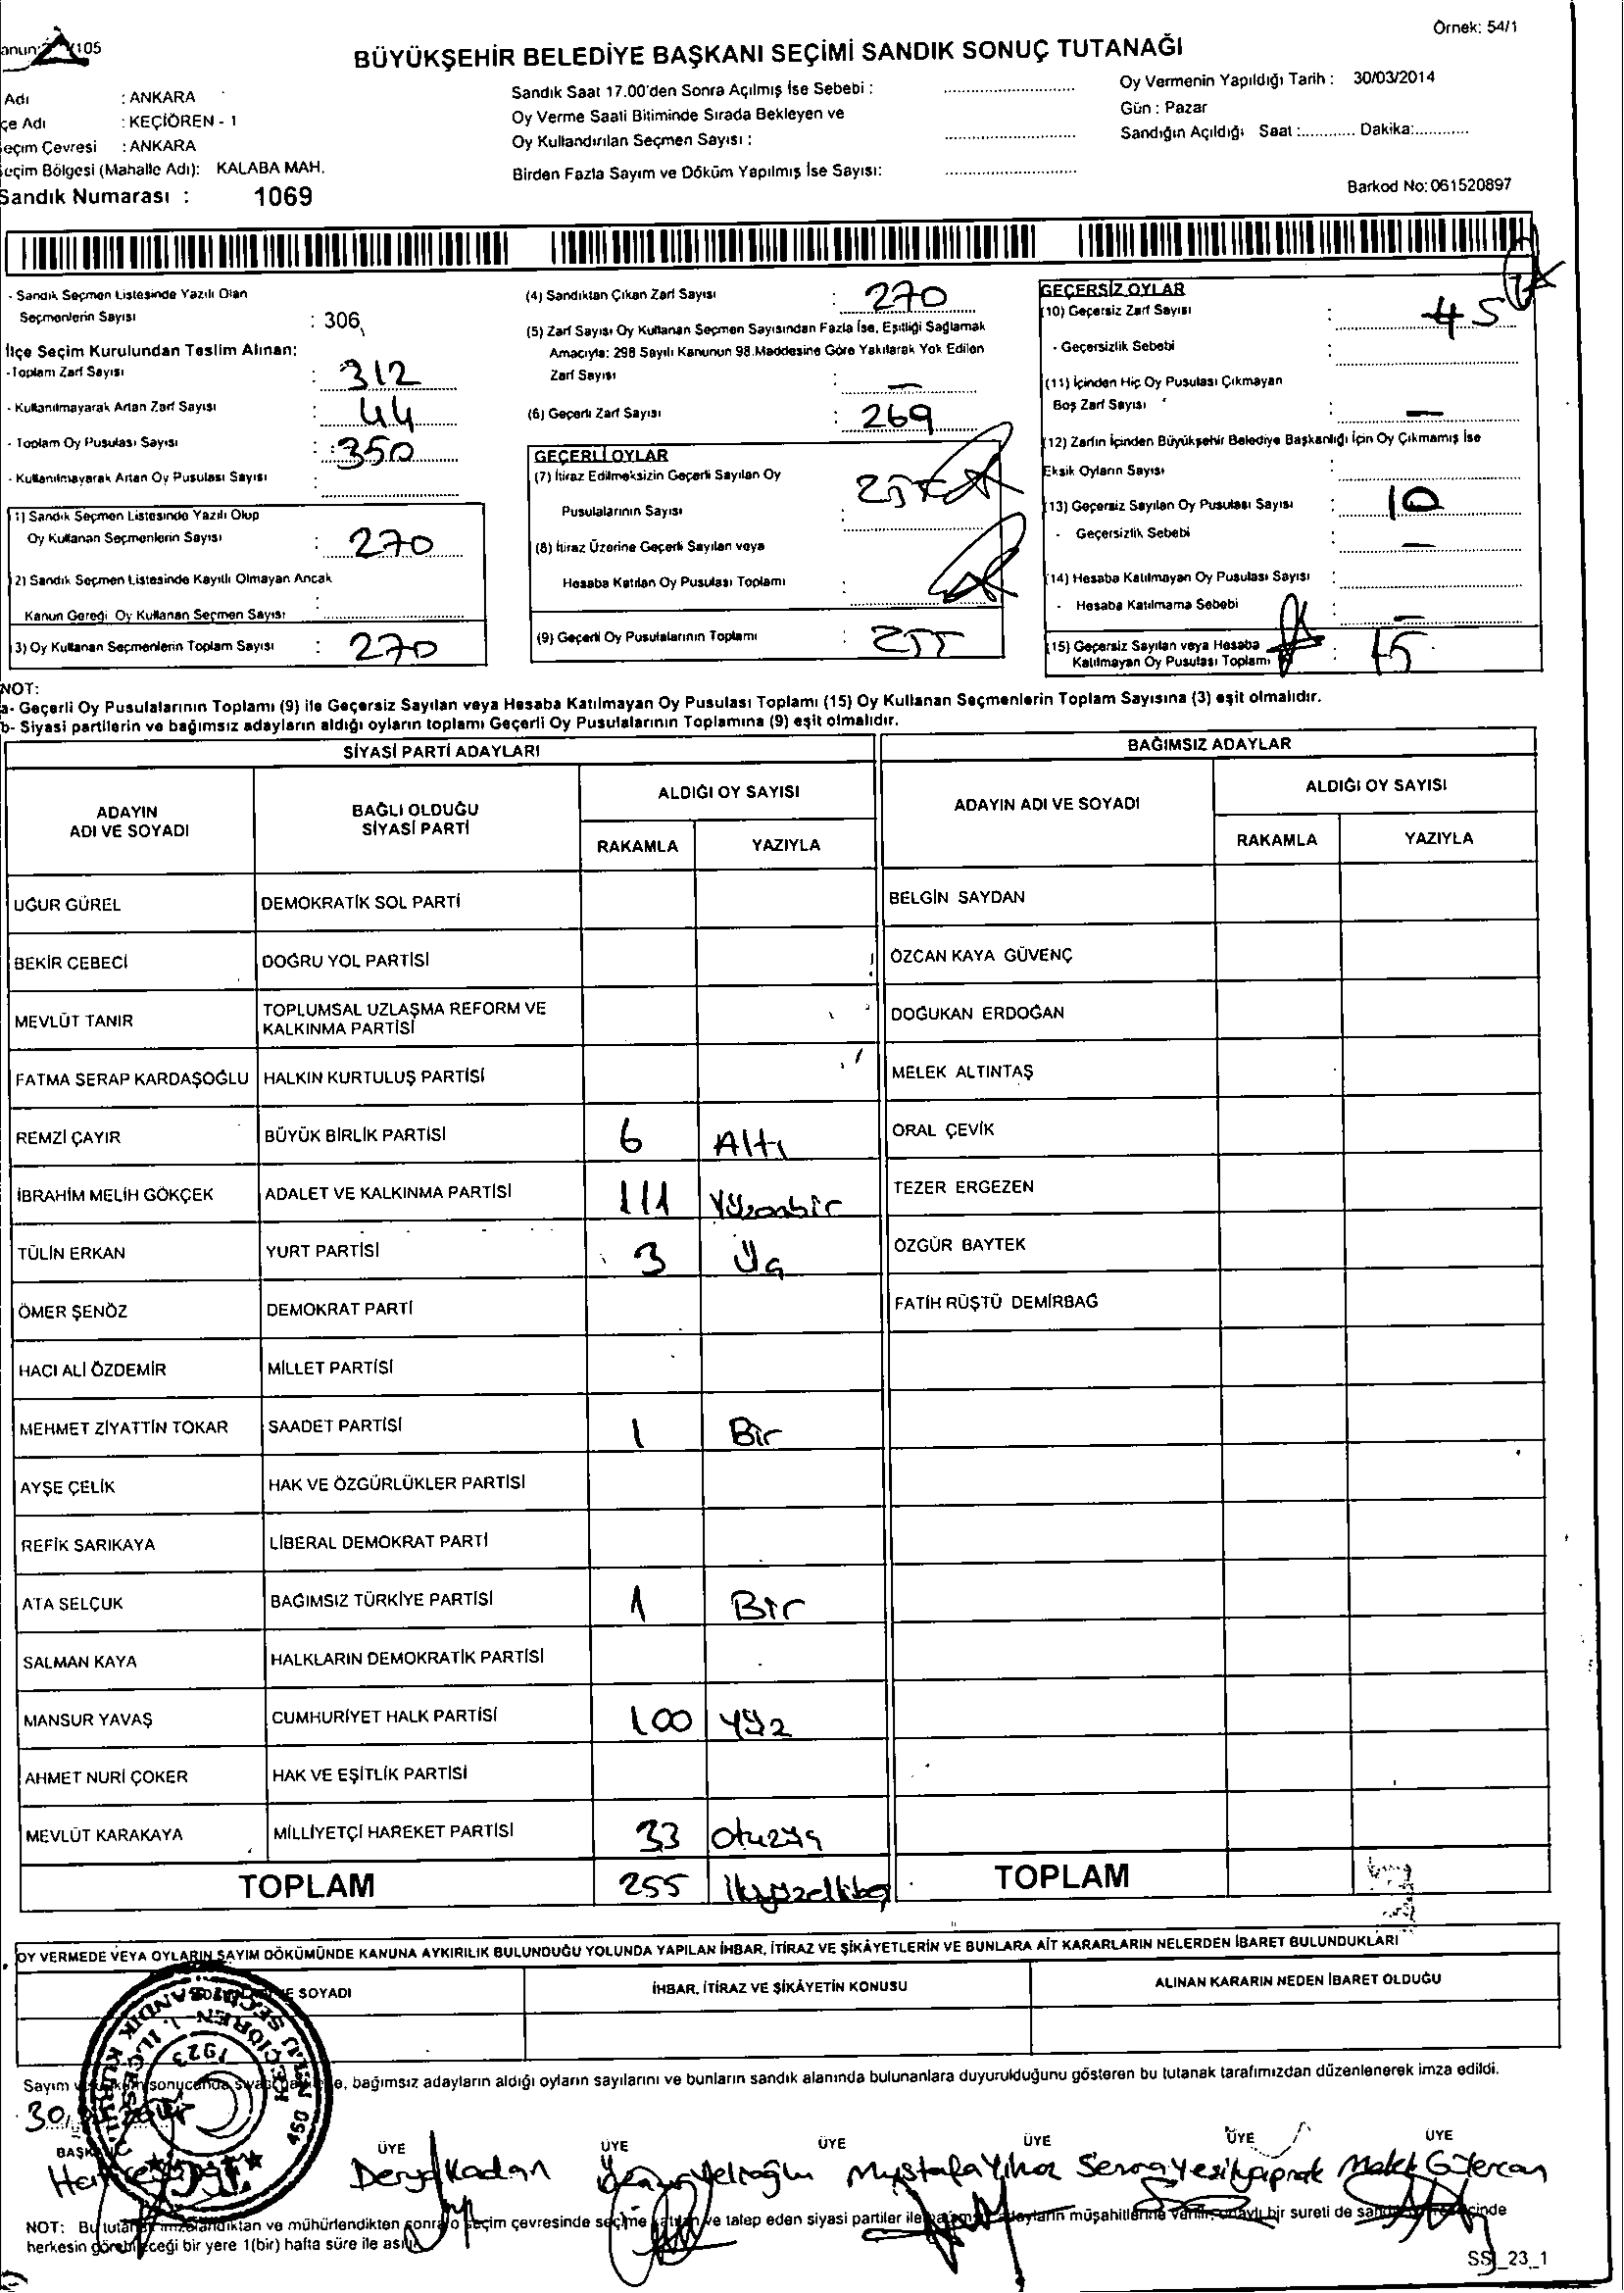 Örnek: 54/1
BÜYÜKŞEHİR BELEDİYE BAŞKANI SEÇİMİ SANDIK SONUÇ TUTANAĞI
Adı : ANKARA
çe Adı : KEÇİÖREN - 1
eçim Çevresi : ANKARA
eçim Bölgesi (Mahalle Adı): KALABA MAH.
Sandık Numarası : 1069
Sandık Saat 17.00'den Sonra Açılmış İse Sebebi :
Oy Verme Saati Bitiminde Sırada Bekleyen ve
Oy Kullandırılan Seçmen Sayısı :
Birden Fazla Sayım ve Döküm Yapılmış İse Sayısı:
Oy Vermenin Yapıldığı Tarih : 30/03/2014
Gün : Pazar
Sandığın Açıldığı Saat :............ Dakika:............
Barkod No: 061520897
- Sandık Seçmen Listesinde Yazılı Olan
Seçmenlerin Sayısı : 306
İlçe Seçim Kurulundan Teslim Alınan:
-Toplam Zarf Sayısı : 312
- Kullanılmayarak Artan Zarf Sayısı : 44
- Toplam Oy Pusulası Sayısı : 350
- Kullanılmayarak Artan Oy Pusulası Sayısı :
1) Sandık Seçmen Listesinde Yazılı Olup
Oy Kullanan Seçmenlerin Sayısı : 270
2) Sandık Seçmen Listesinde Kayıtlı Olmayan Ancak
Kanun Gereği Oy Kullanan Seçmen Sayısı :
3) Oy Kullanan Seçmenlerin Toplam Sayısı : 270
(4) Sandıktan Çıkan Zarf Sayısı : 270
(5) Zarf Sayısı Oy Kullanan Seçmen Sayısından Fazla İse, Eşitliği Sağlamak
Amacıyla: 298 Sayılı Kanunun 98.Maddesine Göre Yakılarak Yok Edilen
Zarf Sayısı : —
(6) Geçerli Zarf Sayısı : 269
GEÇERLİ OYLAR
(7) İtiraz Edilmeksizin Geçerli Sayılan Oy
Pusulalarının Sayısı :
(8) İtiraz Üzerine Geçerli Sayılan veya
Hesaba Katılan Oy Pusulası Toplamı :
(9) Geçerli Oy Pusulalarının Toplamı : 255
GEÇERSİZ OYLAR
(10) Geçersiz Zarf Sayısı :
- Geçersizlik Sebebi :
(11) İçinden Hiç Oy Pusulası Çıkmayan
Boş Zarf Sayısı : —
(12) Zarfın İçinden Büyükşehir Belediye Başkanlığı İçin Oy Çıkmamış İse
Eksik Oyların Sayısı :
(13) Geçersiz Sayılan Oy Pusulası Sayısı : 10
- Geçersizlik Sebebi : —
(14) Hesaba Katılmayan Oy Pusulası Sayısı :
- Hesaba Katılmama Sebebi : —
(15) Geçersiz Sayılan veya Hesaba
Katılmayan Oy Pusulası Toplamı : 15
NOT:
a- Geçerli Oy Pusulalarının Toplamı (9) ile Geçersiz Sayılan veya Hesaba Katılmayan Oy Pusulası Toplamı (15) Oy Kullanan Seçmenlerin Toplam Sayısına (3) eşit olmalıdır.
b- Siyasi partilerin ve bağımsız adayların aldığı oyların toplamı Geçerli Oy Pusulalarının Toplamına (9) eşit olmalıdır.
SİYASİ PARTİ ADAYLARI BAĞIMSIZ ADAYLAR
ADAYIN
ADI VE SOYADI
BAĞLI OLDUĞU
SİYASİ PARTİ
ALDIĞI OY SAYISI
RAKAMLA YAZIYLA
ADAYIN ADI VE SOYADI
ALDIĞI OY SAYISI
RAKAMLA YAZIYLA
UĞUR GÜREL DEMOKRATİK SOL PARTİ BELGİN SAYDAN
BEKİR CEBECİ DOĞRU YOL PARTİSİ ÖZCAN KAYA GÜVENÇ
MEVLÜT TANIR TOPLUMSAL UZLAŞMA REFORM VE
KALKINMA PARTİSİ DOĞUKAN ERDOĞAN
FATMA SERAP KARDAŞOĞLU HALKIN KURTULUŞ PARTİSİ MELEK ALTINTAŞ
REMZİ ÇAYIR BÜYÜK BİRLİK PARTİSİ 6 Altı ORAL ÇEVİK
İBRAHİM MELİH GÖKÇEK ADALET VE KALKINMA PARTİSİ 111 Yüzonbir TEZER ERGEZEN
TÜLİN ERKAN YURT PARTİSİ 3 Üç ÖZGÜR BAYTEK
ÖMER ŞENÖZ DEMOKRAT PARTİ FATİH RÜŞTÜ DEMİRBAĞ
HACI ALİ ÖZDEMİR MİLLET PARTİSİ
MEHMET ZİYATTİN TOKAR SAADET PARTİSİ 1 Bir
AYŞE ÇELİK HAK VE ÖZGÜRLÜKLER PARTİSİ
REFİK SARIKAYA LİBERAL DEMOKRAT PARTİ
ATA SELÇUK BAĞIMSIZ TÜRKİYE PARTİSİ 1 Bir
SALMAN KAYA HALKLARIN DEMOKRATİK PARTİSİ
MANSUR YAVAŞ CUMHURİYET HALK PARTİSİ 100 Yüz
AHMET NURİ ÇOKER HAK VE EŞİTLİK PARTİSİ
MEVLÜT KARAKAYA MİLLİYETÇİ HAREKET PARTİSİ 33 Otuzüç
TOPLAM 255 İkiyüzellibeş TOPLAM
OY VERMEDE VEYA OYLARIN SAYIM DÖKÜMÜNDE KANUNA AYKIRILIK BULUNDUĞU YOLUNDA YAPILAN İHBAR, İTİRAZ VE ŞİKÂYETLERİN VE BUNLARA AİT KARARLARIN NELERDEN İBARET BULUNDUKLARI
SOYADI İHBAR, İTİRAZ VE ŞİKÂYETİN KONUSU ALINAN KARARIN NEDEN İBARET OLDUĞU
Sayım sonucunda bağımsız adayların aldığı oyların sayılarını ve bunların sandık alanında bulunanlara duyurulduğunu gösteren bu tutanak tarafımızdan düzenlenerek imza edildi.
BAŞKAN ÜYE ÜYE ÜYE ÜYE ÜYE ÜYE
Derya Kadan Mustafa Yılmaz Serra Yeşilyaprak Melek Gülercan
NOT: Bu tutanak imzalandıktan ve mühürlendikten sonra o seçim çevresinde seçime katılan ve talep eden siyasi partiler ile bağımsız adayların müşahitlerine verilir, onaylı bir sureti de sandık çevresinde
herkesin görebileceği bir yere 1(bir) hafta süre ile asılır.
SS_23_1